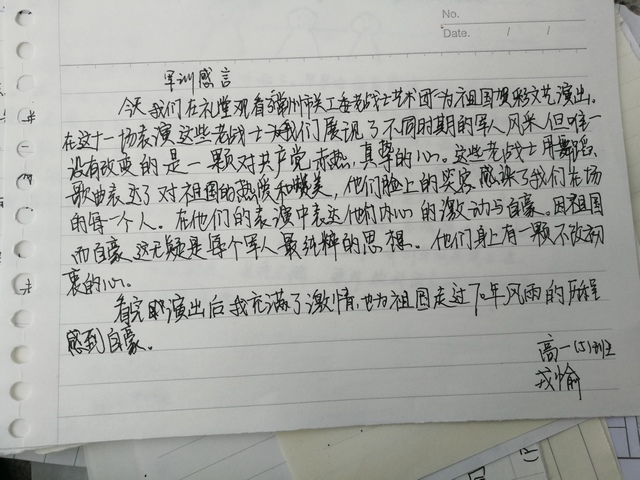 No.
Date. / /
军训感言
今天我们在礼堂观看了常州市关工委老战士艺术团"为祖国喝彩"文艺演出。
在这十一场表演这些老战士为我们展现了不同时期的军人风采,但唯一
没有改变的是一颗对共产党赤热,真挚的心。这些老战士用舞蹈、
歌曲表达了对祖国的热爱和赞美,他们脸上的笑容感染了我们在场
的每一个人。在他们的表演中表达他们内心的激动与自豪。因祖国
而自豪,这无疑是每个军人最纯粹的思想。他们身上有一颗不改初
衷的心。
看完演出后我充满了激情,也为祖国走过70年风雨的历程
感到自豪。
高一(5)班
戎愉